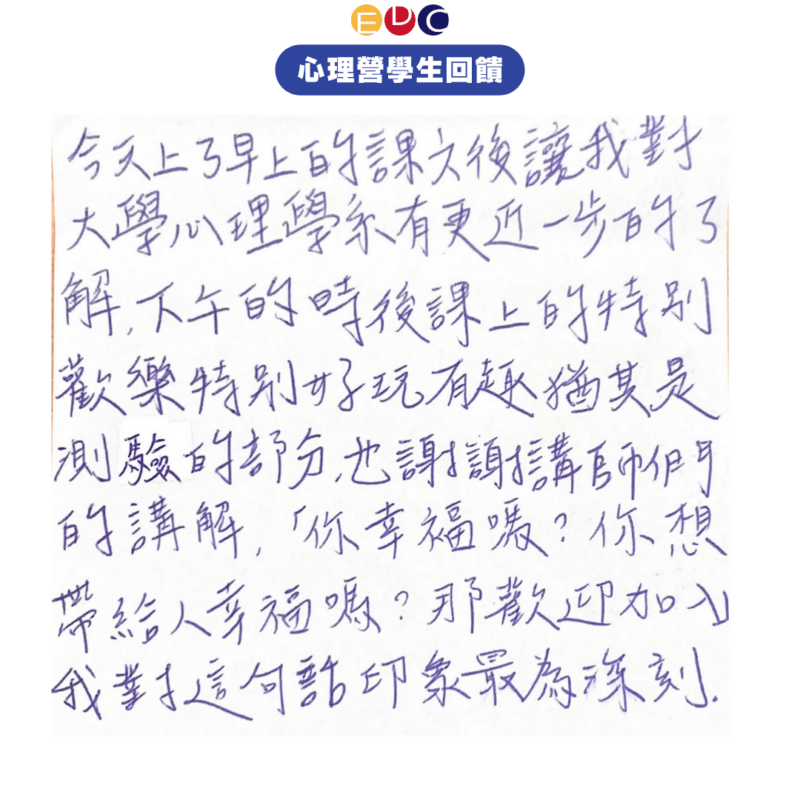 EDC
心理營學生回饋
今天上了早上的課之後讓我對
大學心理學系有更近一步的了
解,下午的時後課上的特別
歡樂特別好玩有趣猶其是
測驗的部分,也謝謝講師們
的講解,「你幸福嗎?你想
帶給人幸福嗎?那歡迎加入
我對這句話印象最為深刻.